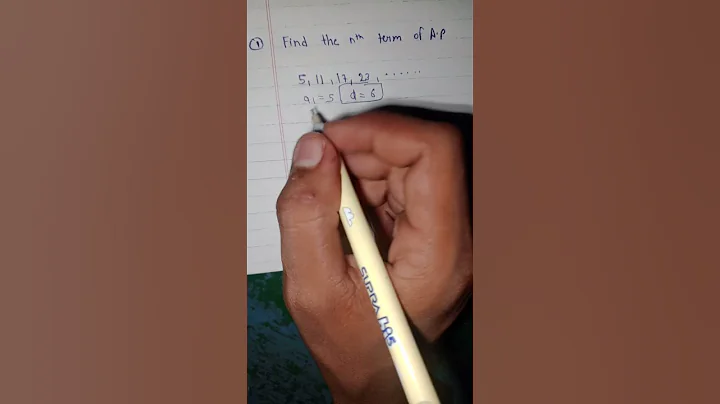 ① Find the nth term of A.P
5, 11, 17, 23, ......
a1 = 5 d = 6
SUPRA